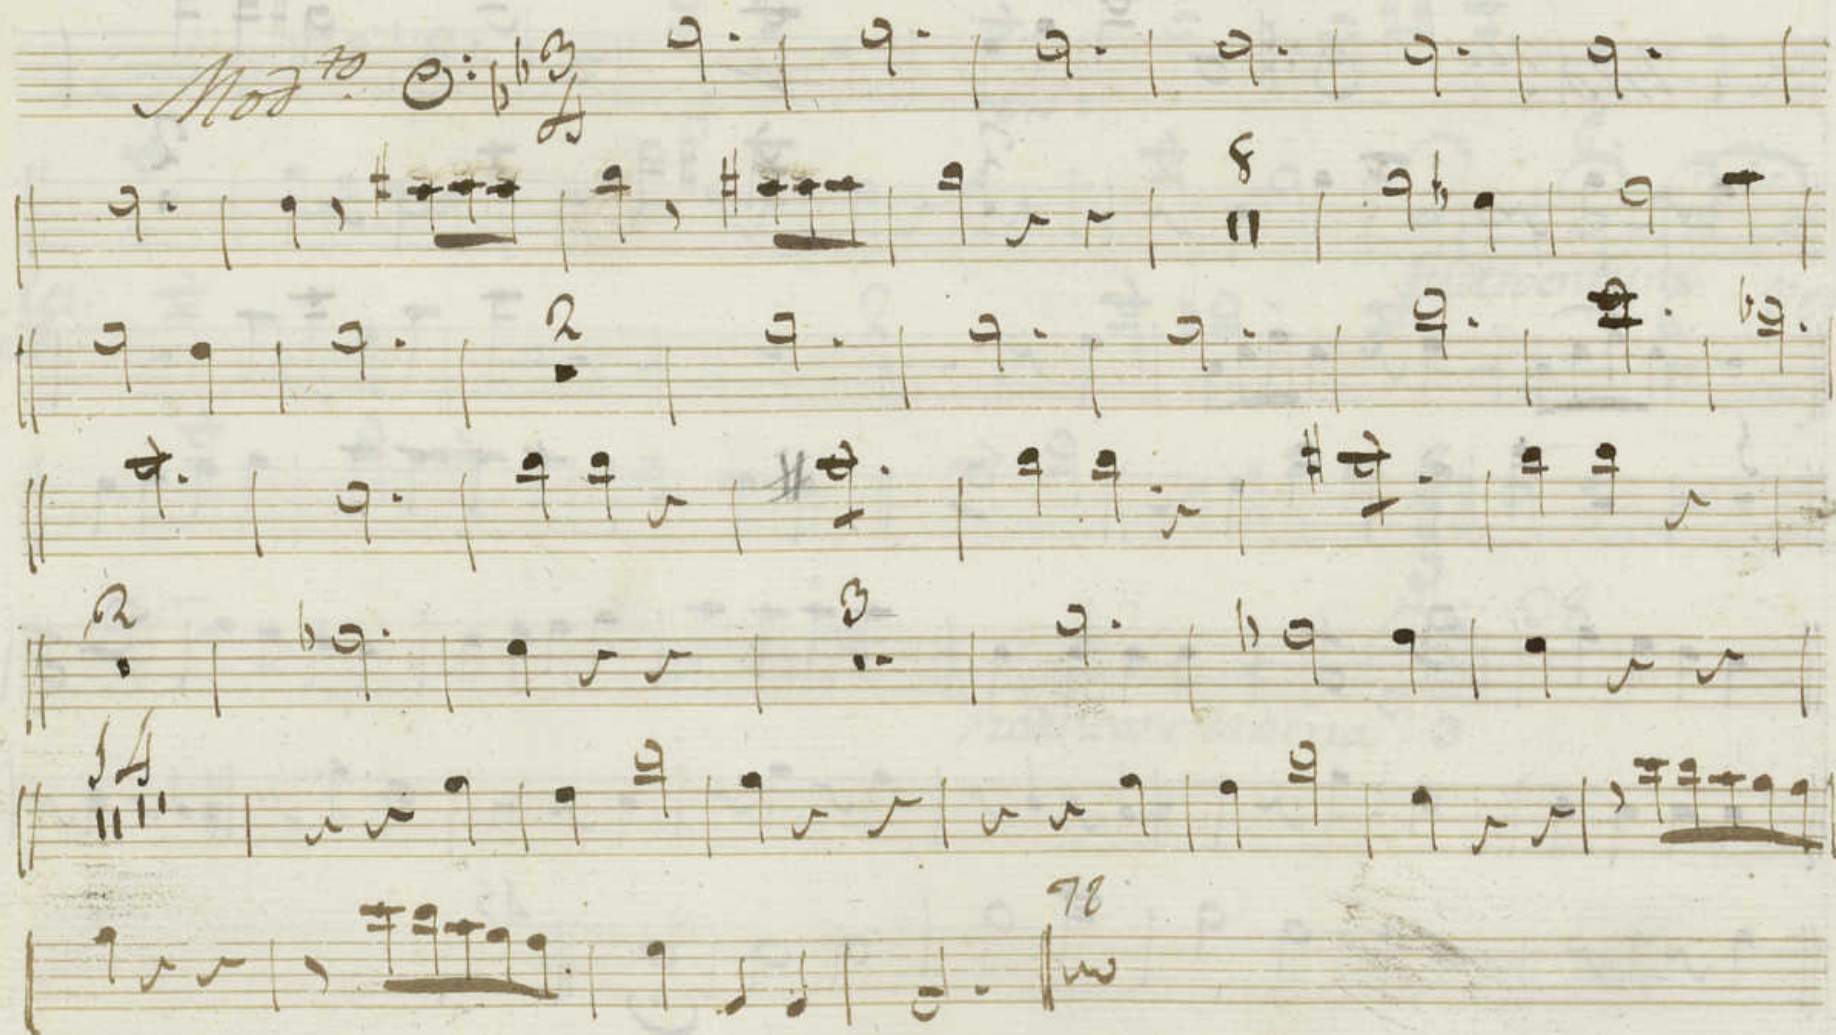 Mod.to 3
4
8
2
2 3
14
78